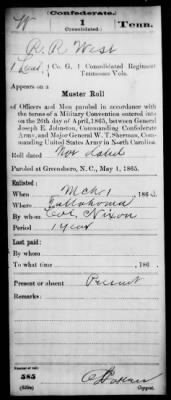 W
Confederate.
1
Consolidated.
Tenn.
R. R. West
1 Lieut, Co. G, 1 Consolidated Regiment
Tennessee Vols.
Appears on a
Muster Roll
of Officers and Men paroled in accordance with
the terms of a Military Convention entered into
on the 26th day of April, 1865, between General
Joseph E. Johnston, Commanding Confederate
Army, and Major General W. T. Sherman, Com-
manding United States Army in North Carolina.
Roll dated Not dated
Paroled at Greensboro, N. C., May 1, 1865.
Enlisted:
When Mch 1, 186
Where Tullahoma
By whom Col. Nixon
Period 1 year
Last paid:
By whom
To what time , 186
Present or absent Present
Remarks:
Number of roll:
585
(639e)
Copyist.